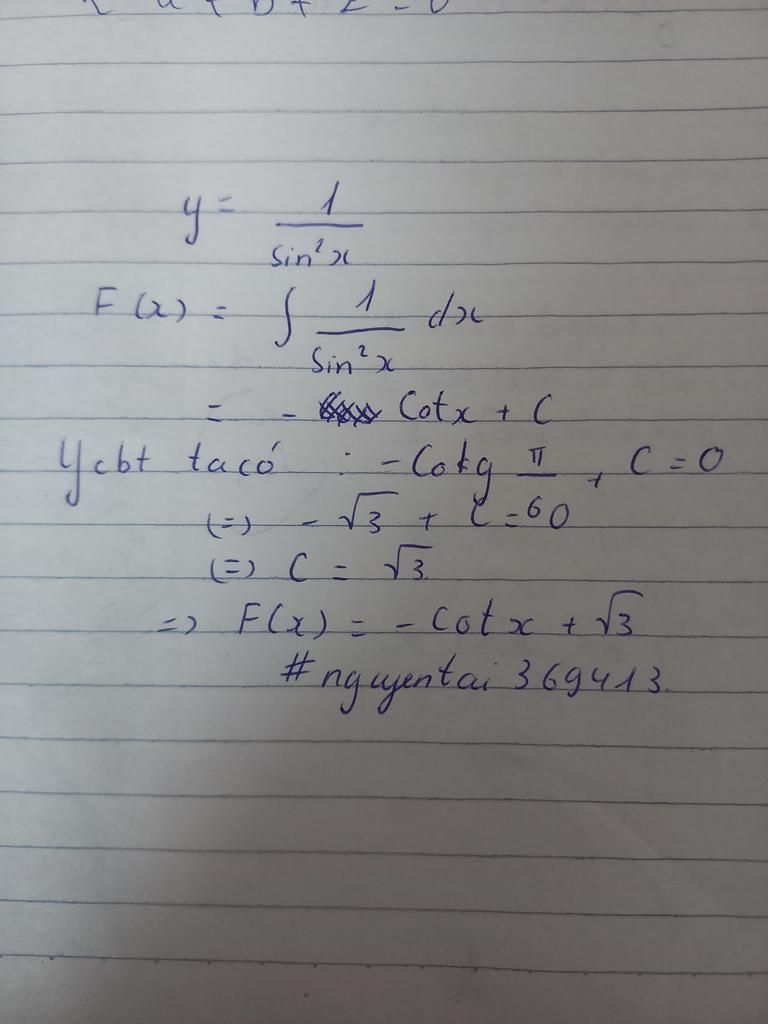 y = 1/sin²x
F(x) = ∫ 1/sin²x dx
= - Cotx + C
Ycbt ta có : - Cotg π/6 + C = 0
(=) - √3 + C = 0
(=) C = √3
=> F(x) = - Cotx + √3
#nguyentai369413